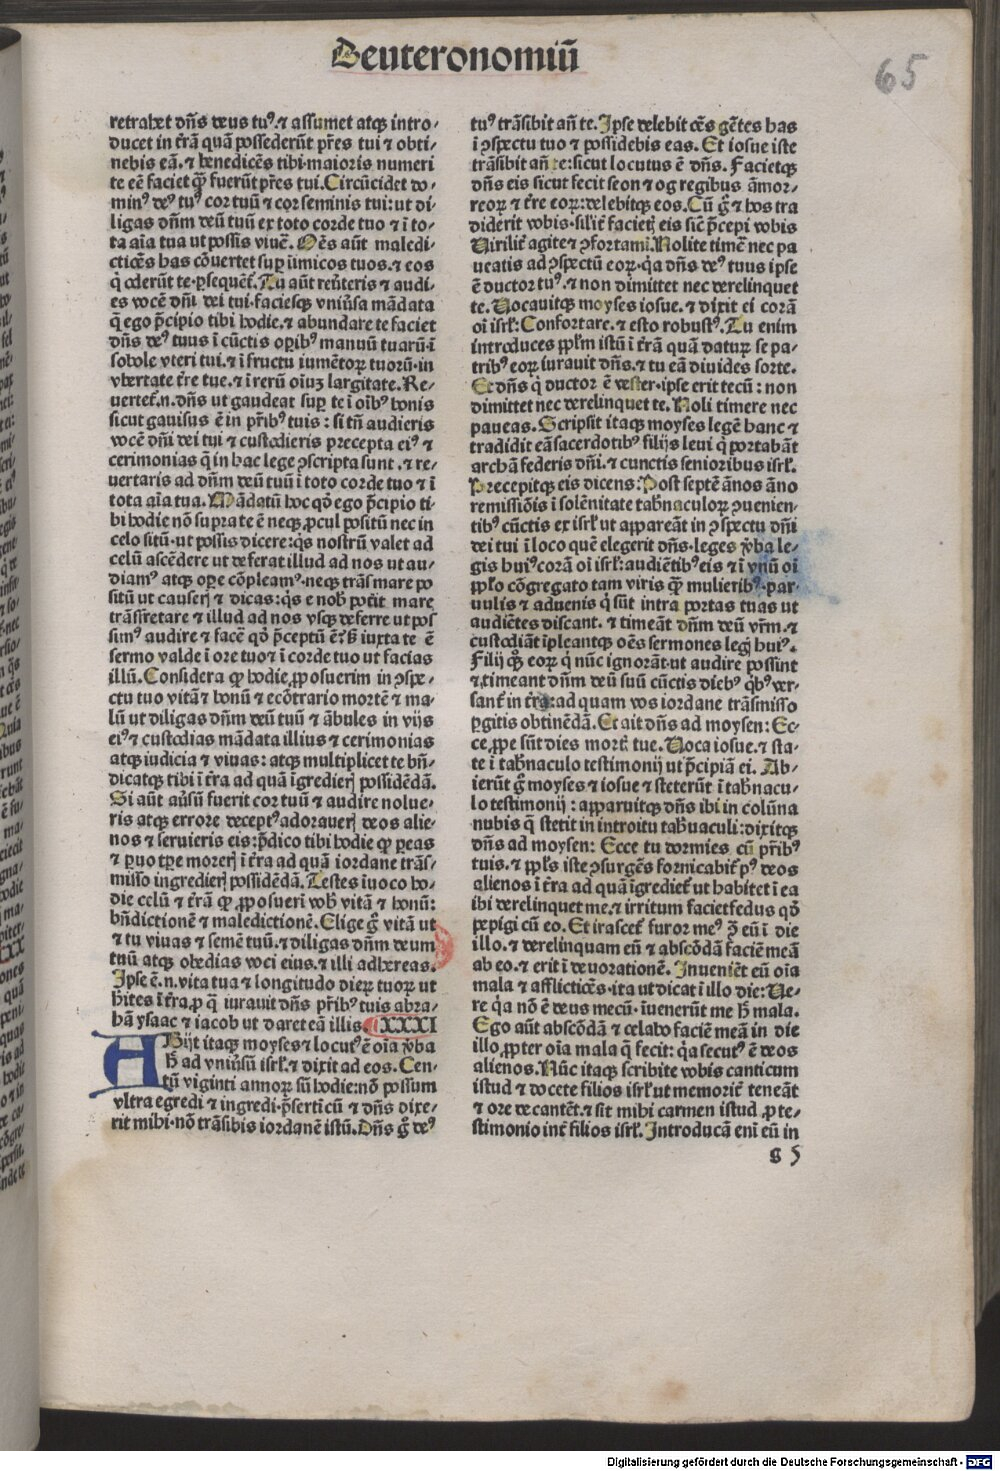 Deuteronomiū
65
retrahet dn̄s deus tuꝰ.⁊ assumet atqꝫ intro-
ducet in t̄rā quā possederūt pr̄es tui ⁊ obti-
nebis eā.⁊ benedicēs tibi maioris numeri
te eē faciet q̄ꝫ fuerūt pr̄es tui. Circūcidet do-
minꝰ deꝰ tuꝰ cor tuū ⁊ cor seminis tui: ut di-
ligas dn̄m deū tuū ex toto corde tuo ⁊ ī to-
ta aīa tua ut possis viuē̄. Oēs aūt maledi-
ctiōes has cōuertet suꝑ īimicos tuos.⁊ eos
q̇ oderūt te ꝑsequēt̄. Tu aūt reūteris ⁊ audi-
es vocē dn̄i dei tui.faciesqꝫ vniūsa mādata
q̄ ego p̄cipio tibi hodie.⁊ abundare te faciet
dn̄s deꝰ tuus ī cūctis oꝑibꝰ manuū tuarū.ī
sobole vteri tui.⁊ ī fructu iumētoꝝ tuorū.in
vbertate t̄re tue.⁊ ī rerū oīuꝫ largitate. Re-
uertet̄.n.dn̄s ut gaudeat suꝑ te ī oībꝰ bonis
sicut gauisus ē in pr̄ibꝰ tuis: si tn̄ audieris
vocē dn̄i dei tui ⁊ custodieris precepta eiꝰ ⁊
cerimonias q̄ in hac lege ꝯscripta sunt.⁊ re-
uertaris ad dn̄m deū tuū ī toto corde tuo ⁊ ī
tota aīa tua. Mādatū hoc qd̄ ego p̄cipio ti-
bi hodie nō supra te ē neqꝫ ꝓcul positū nec in
celo sitū.ut possis dicere:q̇s nostrū valet ad
celū ascēdere ut deferat illud ad nos ut au-
diamꝰ atqꝫ oꝑe cōpleamꝰ.neqꝫ trās mare po
situ ut causerꝭ ⁊ dicas:q̇s e nob̄ poт̄it mare
trāsfretare ⁊ illud ad nos vsqꝫ deferre ut pos
simꝰ audire ⁊ facē̄ qd̄ p̄ceptū ē:sꝫ iuxta te ē
sermo valde ī ore tuo ⁊ ī corde tuo ut facias
illū. Considera ꝙ hodie ꝓposuerim in ꝯspe-
ctu tuo vitā ⁊ bonū ⁊ ecōtrario mortē ⁊ ma-
lū ut diligas dn̄m deū tuū ⁊ ābules in vijs
eiꝰ ⁊ custodias mādata illius ⁊ cerimonias
atqꝫ iudicia ⁊ viuas: atqꝫ multiplicet te bn̄-
dicatqꝫ tibi ī t̄ra ad quā īgredierꝭ possidēdā.
Si aūt aūsū fuerit cor tuū ⁊ audire nolue-
ris atqꝫ errore deceptꝰ adorauerꝭ deos alie-
nos ⁊ seruieris eis:p̄dico tibi hodie ꝙ ꝑeas
⁊ ꝑuo tꝑe morerꝭ ī t̄ra ad quā iordane trās-
misso ingredierꝭ possidēdā. Testes īuoco ho-
die celū ⁊ t̄rā ꝙ ꝓposueri vob̄ vitā ⁊ bonū:
bn̄dictionē ⁊ maledictionē. Elige g̊ vitā ut
⁊ tu viuas ⁊ semē tuū.⁊ diligas dn̄m deum
tuū atqꝫ obedias voci eius.⁊ illi adhereas.
Ipse ē.n.vita tua ⁊ longitudo dierꝝ tuoꝝ ut
h̄ites ī t̄ra.ꝓ q̄ iurauit dn̄s pr̄ibꝰ tuis abra-
hā ysaac ⁊ iacob ut daret eā illis. XXXI
ABijt itaqꝫ moyses ⁊ locutꝰ ē oīa v̄ba
h̄ ad vniūsū isrl̄.⁊ dixit ad eos. Cen-
tū viginti annoꝝ sū hodie:nō possum
vltra egredi ⁊ ingredi.p̄sertī cū ⁊ dn̄s dixe-
rit mihi.nō trāsibis iordanē istū. Dn̄s g̊ deꝰ
tuꝰ trāsibit an̄ te. Ipse delebit oēs gētes has
ī ꝯspectu tuo ⁊ possidebis eas. Et iosue iste
trāsibit an̄ te:sicut locutus ē dn̄s. Facietqꝫ
dn̄s eis sicut fecit seon ⁊ og regibus āmor-
reoꝝ ⁊ t̄re eoꝝ:delebitqꝫ eos. Cū g̊ ⁊ hos tra
diderit vobis.sil̄ir facietꝭ eis sic̄ p̄cepi vobis
Viriliт̄ agite ⁊ ꝯfortamī. Nolite timē̄ nec pa
ueatis ad ꝯspectū eoꝝ.q̇a dn̄s deꝰ tuus ipse
ē ductor tuꝰ.⁊ non dimittet nec derelinquet
te. Vocauitqꝫ moyses iosue.⁊ dixit ei corā
oī isrl̄: Confortare.⁊ esto robustꝰ. Tu enim
introduces ppl̄m istū ī t̄rā quā daturꝝ se pa-
tribꝰ eoꝝ iurauit dn̄s.⁊ tu eā diuides sorte.
Et dn̄s q̇ ductor ē vester.ipse erit tecū: non
dimittet nec derelinquet te. Noli timere nec
paueas. Scripsit itaqꝫ moyses legē hanc ⁊
tradidit eā sacerdotibꝰ filijs leui q̇ portabāt
archā federis dn̄i.⁊ cunctis senioribus isrl̄.
Precepitqꝫ eis dicens: Post septē ānos āno
remissiōis ī solēnitate tab̄naculoꝝ ꝯuenien-
tibꝰ cūctis ex isrl̄ ut appareāt in ꝯspectu dn̄i
dei tui ī loco quē elegerit dn̄s.leges v̄ba le-
gis huiꝰ corā oī isrl̄:audiētibꝰ eis ⁊ ī vnū oī
ppl̄o cōgregato tam viris q̄ꝫ mulieribꝰ.par-
uulis ⁊ aduenis q̇ sūt intra portas tuas ut
audiētes discant.⁊ timeāt dn̄m deū vr̄m.⁊
custodiāt īpleantqꝫ oēs sermones legꝭ huiꝰ.
Filij q̄ꝫ eoꝝ q̇ nūc ignorāt.ut audire possint
⁊ timeant dn̄m deū suū cūctis diebꝰ q̇bꝰ ver-
sant̄ in t̄ra:ad quam vos iordane trāsmisso
ꝑgitis obtinēdā. Et ait dn̄s ad moysen: Ec-
ce ꝓpe sūt dies mort̄ tue. Voca iosue.⁊ sta-
te ī tab̄naculo testimonij ut p̄cipiā ei. Ab-
ierūt g̊ moyses ⁊ iosue ⁊ steterūt ī tab̄nacu-
lo testimonij: apparuitqꝫ dn̄s ibi in colūna
nubis q̄ stetit in introitu tab̄naculi:dixitqꝫ
dn̄s ad moysen: Ecce tu dormies cū pr̄ibꝰ
tuis.⁊ ppl̄s iste ꝯsurgēs fornicabit̄ pꝰ deos
alienos ī t̄ra ad quā īgrediet̄ ut habitet ī ea
ibi derelinquet me.⁊ irritum faciet fedus qd̄
pepigi cū eo. Et irascet̄ furor meꝰ ꝯ̄ eū ī die
illo.⁊ derelinquam eū ⁊ abscōdā faciē meā
ab eo.⁊ erit ī deuorationē. Inueniēt eū oīa
mala ⁊ afflictiōes.ita ut dicat ī illo die: Ve-
re q̇a nō ē deus mecū.īuenerūt me h̄ mala.
Ego aūt abscōdā ⁊ celabo faciē meā in die
illo ꝓpter oīa mala q̄ fecit: q̇a secutꝰ ē deos
alienos. Nūc itaqꝫ scribite vobis canticum
istud ⁊ docete filios isrl̄ ut memorit̄ teneāt
⁊ ore decantēt.⁊ sit mihi carmen istud ꝓ te-
stimonio int̄ filios isrl̄. Introducā enī eū in
g 5
Digitalisierung gefördert durch die Deutsche Forschungsgemeinschaft - DFG